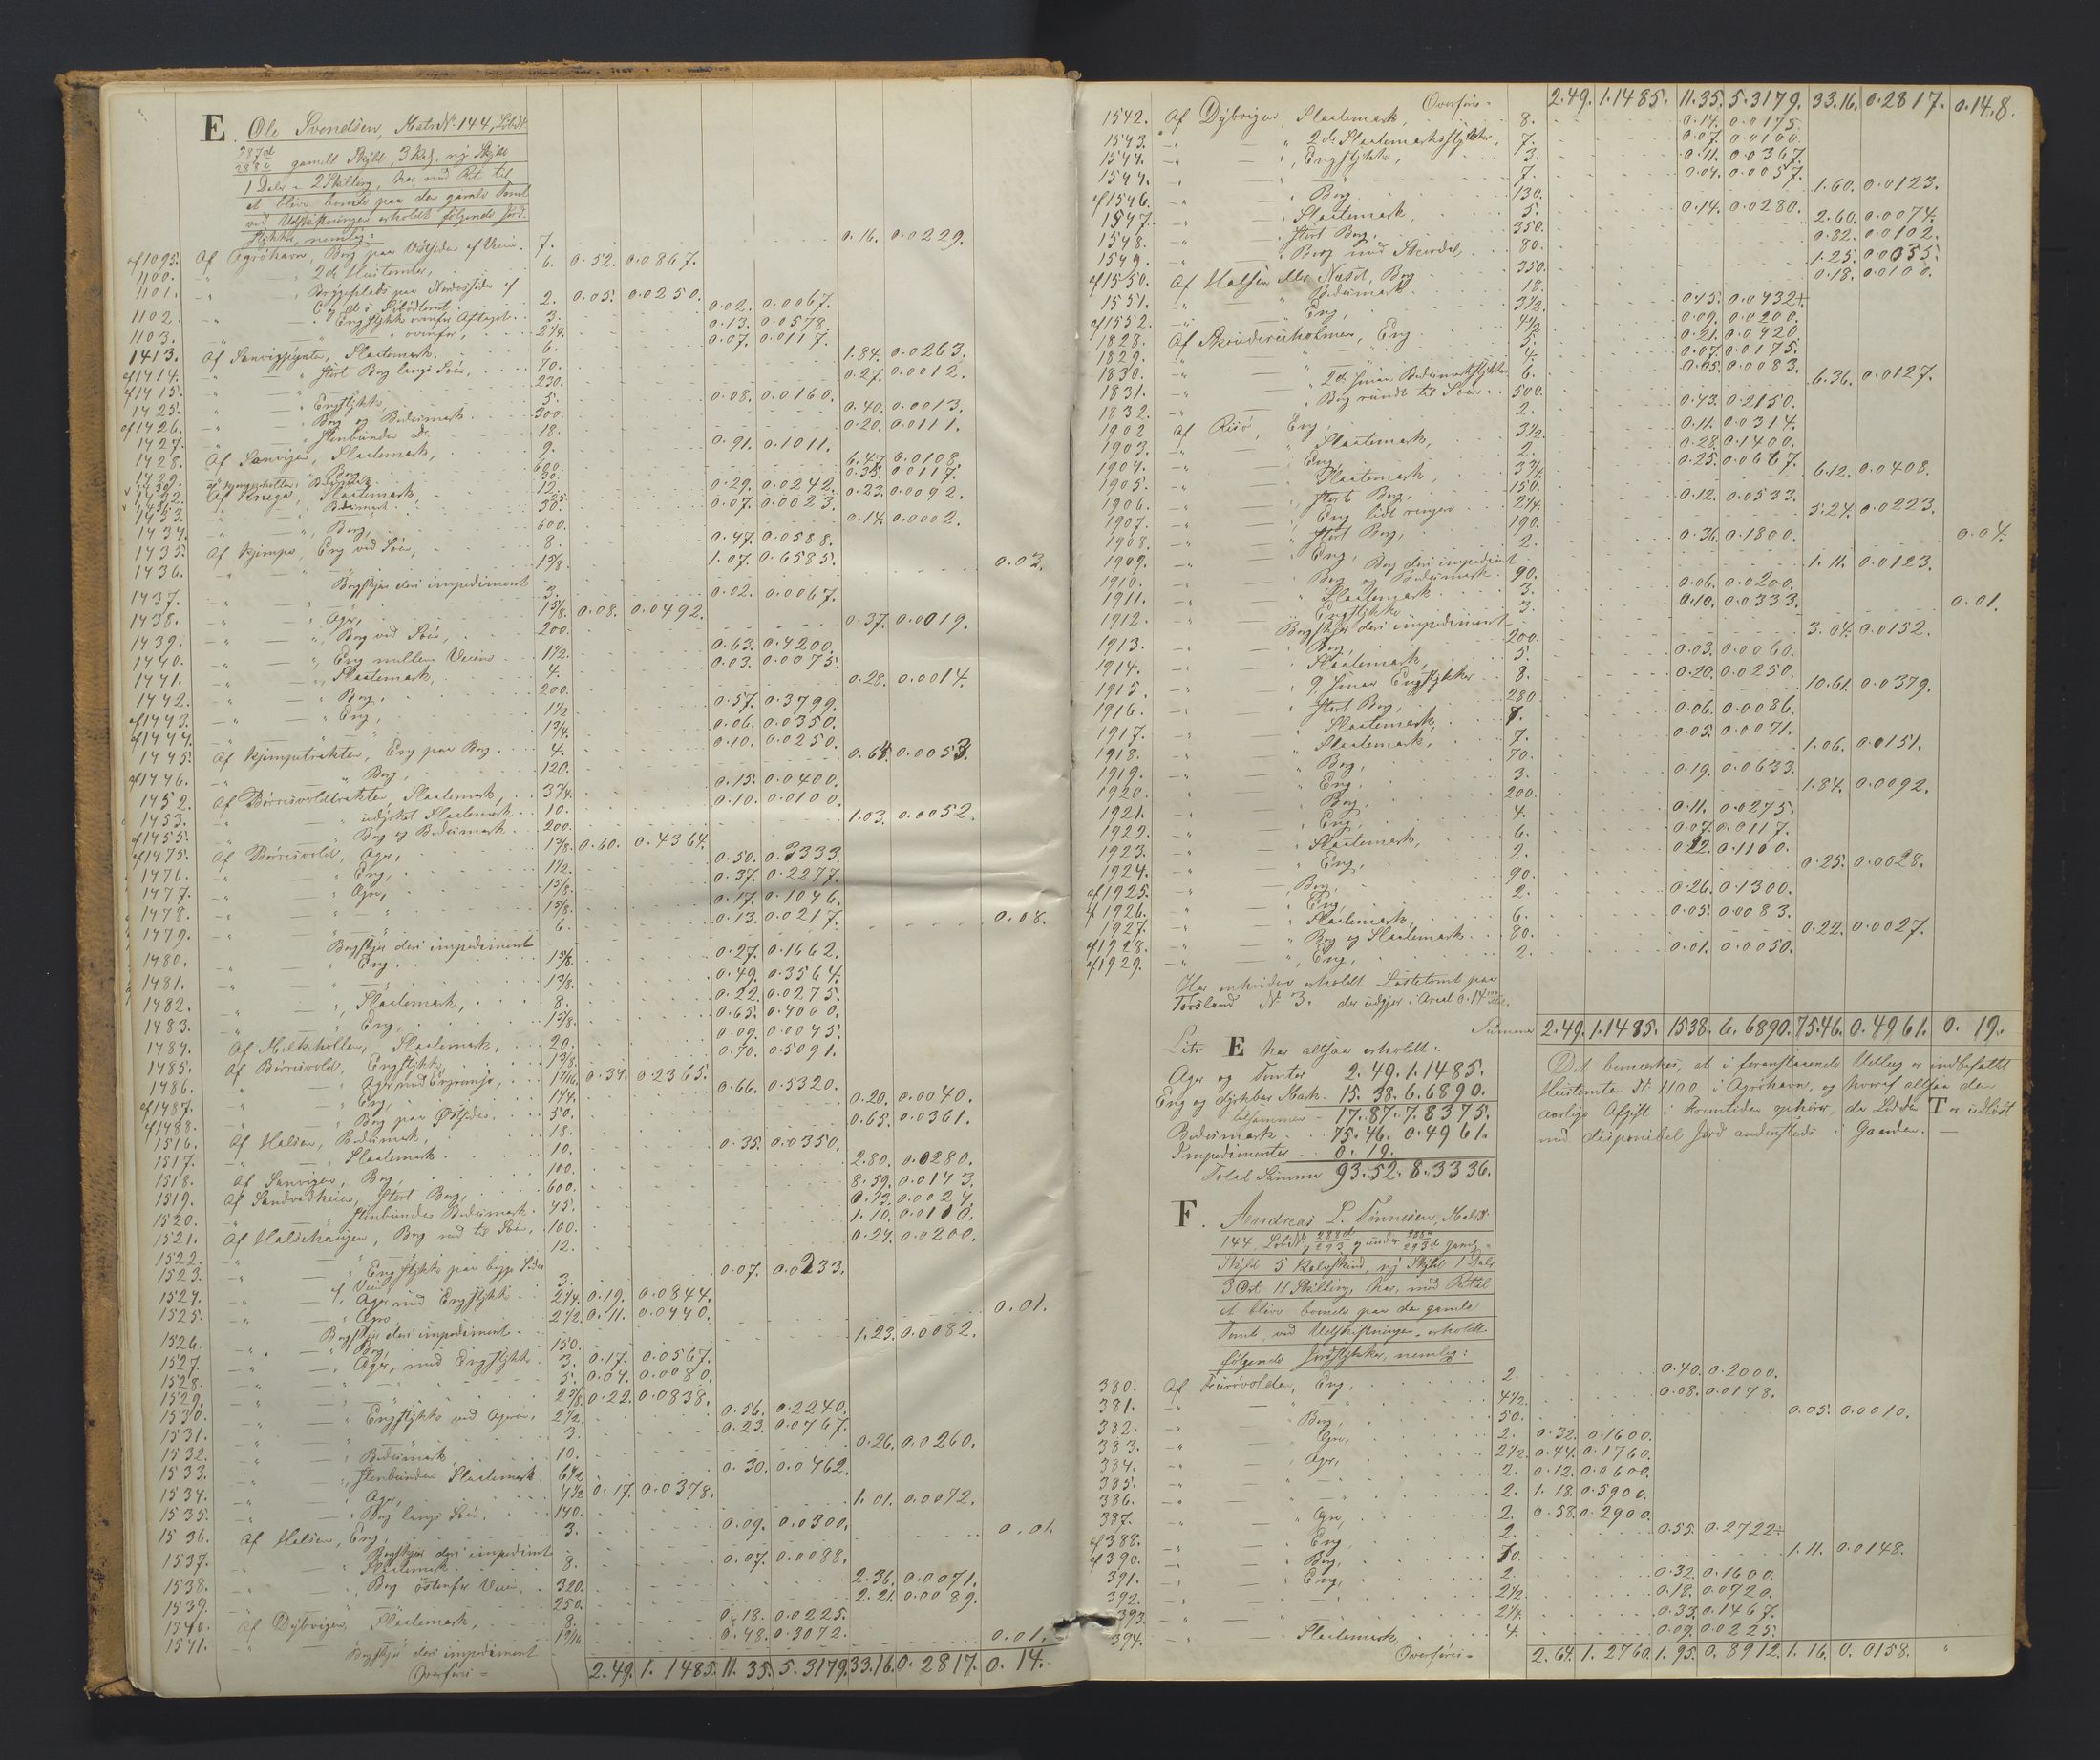 E. Ole Svendsen, Matr. Nr. 144, Lbnr.
287d
288c gamelt Skyld, 3 Kalf. ny Skyld
1 Daler - 2 Skilling, har, med Ret til
at blive boende paa den gamle Tomt
ved Udskiftningen erholdt følgende Jord-
stykker, nemlig:
af 1095. Af Agrehavn, Berg paa Østsiden af Veien. 7. 0.16. 0.0229.
1100. 2de Huustomter, 6. 0.52. 0.0867.
1101. Bryggeplads paa Nordostsiden af 2. 0.05. 0.0250.
1102. Engstykke ovenfor Aftaget 3. 0.02. 0.0067.
1103. ovenfor, 2 1/4. 0.13. 0.0578.
1413. Af Sanvigpynten, Slaatemark. 6. 0.07. 0.0117.
af 1414. stort Berg langs Søen, 70. 1.84. 0.0263.
af 1415. 230. 0.27. 0.0012.
1425. Engstykke, 5. 0.08. 0.0160.
af 1426. Berg og Bedemark 300. 0.40. 0.0013.
1427. Stenbunden Do 18. 0.20. 0.0111.
1428. Af Sanvigen, Slaatemark, 9. 0.91. 0.1011.
1429. Berg 600. 6.47. 0.0108.
30. 0.35. 0.0117.
Slaatemark, 12. 0.29. 0.0242.
1433. Bedemark 0.23. 0.0092.
30. 0.07. 0.0023.
1434. Berg, 600. 0.14. 0.0002.
1435. Af Kjimpe, Eng ved Søen, 8. 0.47. 0.0588.
1436. 1 5/8. 1.07. 0.6585.
Bergskjær deri impediment 0.03.
1437. 3. 0.02. 0.0067.
1438. Ager, 1 5/8. 0.08. 0.0492.
1439. Berg ved Søen, 200. 0.37. 0.0019.
1440. Eng mellem Veiene 1 1/2. 0.63. 0.4200.
1441. Slaatemark, 4. 0.03. 0.0075.
1442. Berg, 200. 0.28. 0.0014.
af 1443. Eng, 1 1/2. 0.57. 0.3799.
af 1444. 1 3/4. 0.06. 0.0350.
1445. Af Kjimpetrakten, Eng paa Berg. 4. 0.10. 0.0250.
af 1446. Berg, 120. 0.64. 0.0053.
1452. Af Børrisvoldtrakten, Slaatemark, 3 3/4. 0.15. 0.0400.
1453. udyrket Slaatemark 10. 0.10. 0.0100.
af 1455. Berg og Bedemark 200. 1.03. 0.0052.
af 1475. Af Børrisvold, Ager, 1 3/8. 0.60. 0.4364.
1476. Eng, 1 1/2. 0.50. 0.3333.
1477. Ager, 1 5/8. 0.37. 0.2277.
1478. 1 5/8. 0.17. 0.1046.
1479. 6. 0.13. 0.0217.
Bergskjær deri impediment 0.08.
1480. Eng. 1 5/8. 0.27. 0.1662.
1481. 1 3/8. 0.49. 0.3564.
1482. Slaatemark, 8. 0.22. 0.0275.
1483. Eng, 1 5/8. 0.65. 0.4000.
1484. Af Melkehollen, Slaatemark, 20. 0.09. 0.0045.
1485. Af Børrisvold, Engstykke 1 3/8. 0.70. 0.5091.
1486. Ager med Engremse, 1 7/16. 0.34. 0.2365.
af 1487. Eng, 1 1/4. 0.66. 0.5320.
af 1488. Berg paa Østsiden 50. 0.20. 0.0040.
1516. Af Halsen, Bedemark, 18. 0.65. 0.0361.
1517. Slaatemark 10. 0.35. 0.0350.
1518. Af Sanvigen, Berg, 100. 2.80. 0.0280.
1519. Af Sandvedheien, stort Berg, 600. 8.59. 0.0143.
1520. stenbunden Bedemark 45. 0.13. 0.0024.
1521. Af Halsehaugen, Berg ned til Søen, 100. 1.10. 0.0110.
1522. 12. 0.24. 0.0200.
1523. Engstykke paa begge Sider
af Veien 3. 0.07. 0.0233.
1524. Ager med Engstykke 2 1/4. 0.19. 0.0844.
1525. Ager 2 1/2. 0.11. 0.0440.
Bergskjær deri impediment 0.01.
1526. Berg, 150. 1.23. 0.0082.
1527. Ager, med Engstykke 3. 0.17. 0.0567.
1528. 5. 0.04. 0.0080.
1529. 2 5/8. 0.22. 0.0838.
1530. Engstykke ved Ageren, 2 1/2. 0.56. 0.2240.
1531. 3. 0.23. 0.0767.
1532. Bedemark, 10. 0.26. 0.0260.
1533. Stenbunden Slaatemark 6 1/2. 0.30. 0.0462.
1534. Ager, 4 1/2. 0.17. 0.0378.
1535. Berg langs Søen, 140. 1.01. 0.0072.
1536. Af Halsen, Eng, 3. 0.09. 0.0300.
Bergskjær deri impediment 0.01.
1537. Slaatemark 8. 0.07. 0.0088.
1538. Berg østenfor Veien, 320. 2.36. 0.0071.
1539. 250. 2.21. 0.0089.
1540. Af Dybvigen, Slaatemark, 8. 0.18. 0.0225.
1541. 1 9/16. 0.48. 0.3072.
Bergskjær deri impediment 0.01.
Overføres = 2.49. 1.1485. 11.35. 5.3179. 33.16. 0.2817. 0.14.
Overført = 2.49. 1.1485. 11.35. 5.3179. 33.16. 0.2817. 0.14.
1542. Af Dybvigen, Slaatemark, 8. 0.14. 0.0175.
1543. 2de Slaatemarksstykker, 7. 0.07. 0.0100.
1544. Engstykke, 3. 0.11. 0.0367.
1544. 7. 0.04. 0.0057.
af 1546. Berg 130. 1.60. 0.0123.
1547. Slaatemark, 5. 0.14. 0.0280.
1548. stort Berg, 350. 2.60. 0.0074.
1549. Berg med 80. 0.82. 0.0102.
af 1550. Af Halsen eller Næset, Berg 350. 1.25. 0.0035.
1551. Bedemark 18. 0.18. 0.0100.
af 1552. Eng, 3 1/2. 0.15. 0.0432+.
1828. Af Skouderuholmen, Eng 4 1/2. 0.09. 0.0200.
1829. 5. 0.21. 0.0420.
1830. 4. 0.07. 0.0175.
1831. 2de smaa Bedemarkstykker 6. 0.05. 0.0083.
1832. Berg rundt til Søen 500. 6.36. 0.0127.
1902 af Risø, Eng, 2. 0.43. 0.2150.
1903. Slaatemark, 3 1/2. 0.11. 0.0314.
1904. Eng, 2. 0.28. 0.1400.
1905. Slaatemark, 3 3/4. 0.25. 0.0667.
1906. stort Berg, 150. 6.12. 0.0408.
1907. Eng lidt ringere 2 1/4. 0.12. 0.0533.
1908. stort Berg, 190. 5.24. 0.0223.
1909. Eng, 2. 0.36. 0.1800.
Berg deri impediment 0.04.
1910. Berg og Bedemark 90. 1.11. 0.0123.
1911. Slaatemark 3. 0.06. 0.0200.
1912. Engstykke 3. 0.10. 0.0333.
Bergskjær deri impediment 0.01.
1913. Berg, 200. 3.04. 0.0152.
1914. Slaatemark, 5. 0.03. 0.0060.
1915. 9 smaa Engstykker 8. 0.20. 0.0250.
1916. stort Berg, 280. 10.61. 0.0379.
1917. Slaatemark, 7. 0.06. 0.0086.
1918. Slaatemark, 7. 0.05. 0.0071.
1919. Berg, 70. 1.06. 0.0151.
1920. Eng. 3. 0.19. 0.0633.
1921. Berg, 200. 1.84. 0.0092.
1922. Eng, 4. 0.11. 0.0275.
1923. Slaatemark, 6. 0.07. 0.0117.
1924. Eng, 2. 0.22. 0.1100.
af 1925. Berg, 90. 0.25. 0.0028.
af 1926. Eng, 2. 0.26. 0.1300.
1927. Slaatemark, 6. 0.05. 0.0083.
af 1928. Berg og Slaatemark 80. 0.22. 0.0027.
af 1929. Eng, 2. 0.01. 0.0050.
Har endvidere erholdt Løstetomt paa
Torsland Nr. 3. der udgjør i Areal 0.14
Summa 2.49. 1.1485. 15.38. 6.6890. 75.46. 0.4961. 0.19.
Litr E har altsaa erholdt:
Ager og Tomter 2.49. 1.1485.
Eng og dyrkbar Mark 15.38. 6.6890.
tilsammen 17.87. 7.8375.
Bedemark 75.46. 0.4961.
Impedimenter 0.19.
Total Summa 93.52. 8.3336.
Det bemærkes, at i foranstaaende Udlæg er indbefattet
Huustomten Nr. 1100 i Agrehavn, og hvoraf altsaa den
aarlige Afgift i Fremtiden ophører, da Lodden T er udløst
med disponibel Jord andensteds i Gaarden. —
F. Andreas L. Tønnesen, Matr. Nr.
144. Løbnr. 288d
293 og under 288a
293d gamel
Skyld 5 Kalvskind, ny Skyld 1 Daler
3 Ort 11 Skilling, har, med Ret til
at blive boende paa den gamle
Tomt, ved Udskiftningen erholdt
følgende Jordstykker, nemlig:
380. Af Truisvolden, Eng, 2. 0.40. 0.2000.
381. 4 1/2. 0.08. 0.0178.
382. Berg, 50. 0.05. 0.0010.
383. Ager, 2. 0.32. 0.1600.
384. Ager, 2 1/2. 0.44. 0.1760.
385. 2. 0.12. 0.0600.
386. 2. 1.18. 0.5900.
387. Ager, 2. 0.58. 0.2900.
af 388. Eng, 2. 0.55. 0.2722÷
af 390. Berg, 70. 1.11. 0.0148.
391. Eng, 2. 0.32. 0.1600.
392. 2 1/2. 0.18. 0.0720.
393. 2 1/4. 0.33. 0.1467.
394. Slaatemark, 4. 0.09. 0.0225.
Overføres = 2.64. 1.2760. 1.95. 0.8912. 1.16. 0.0158. "